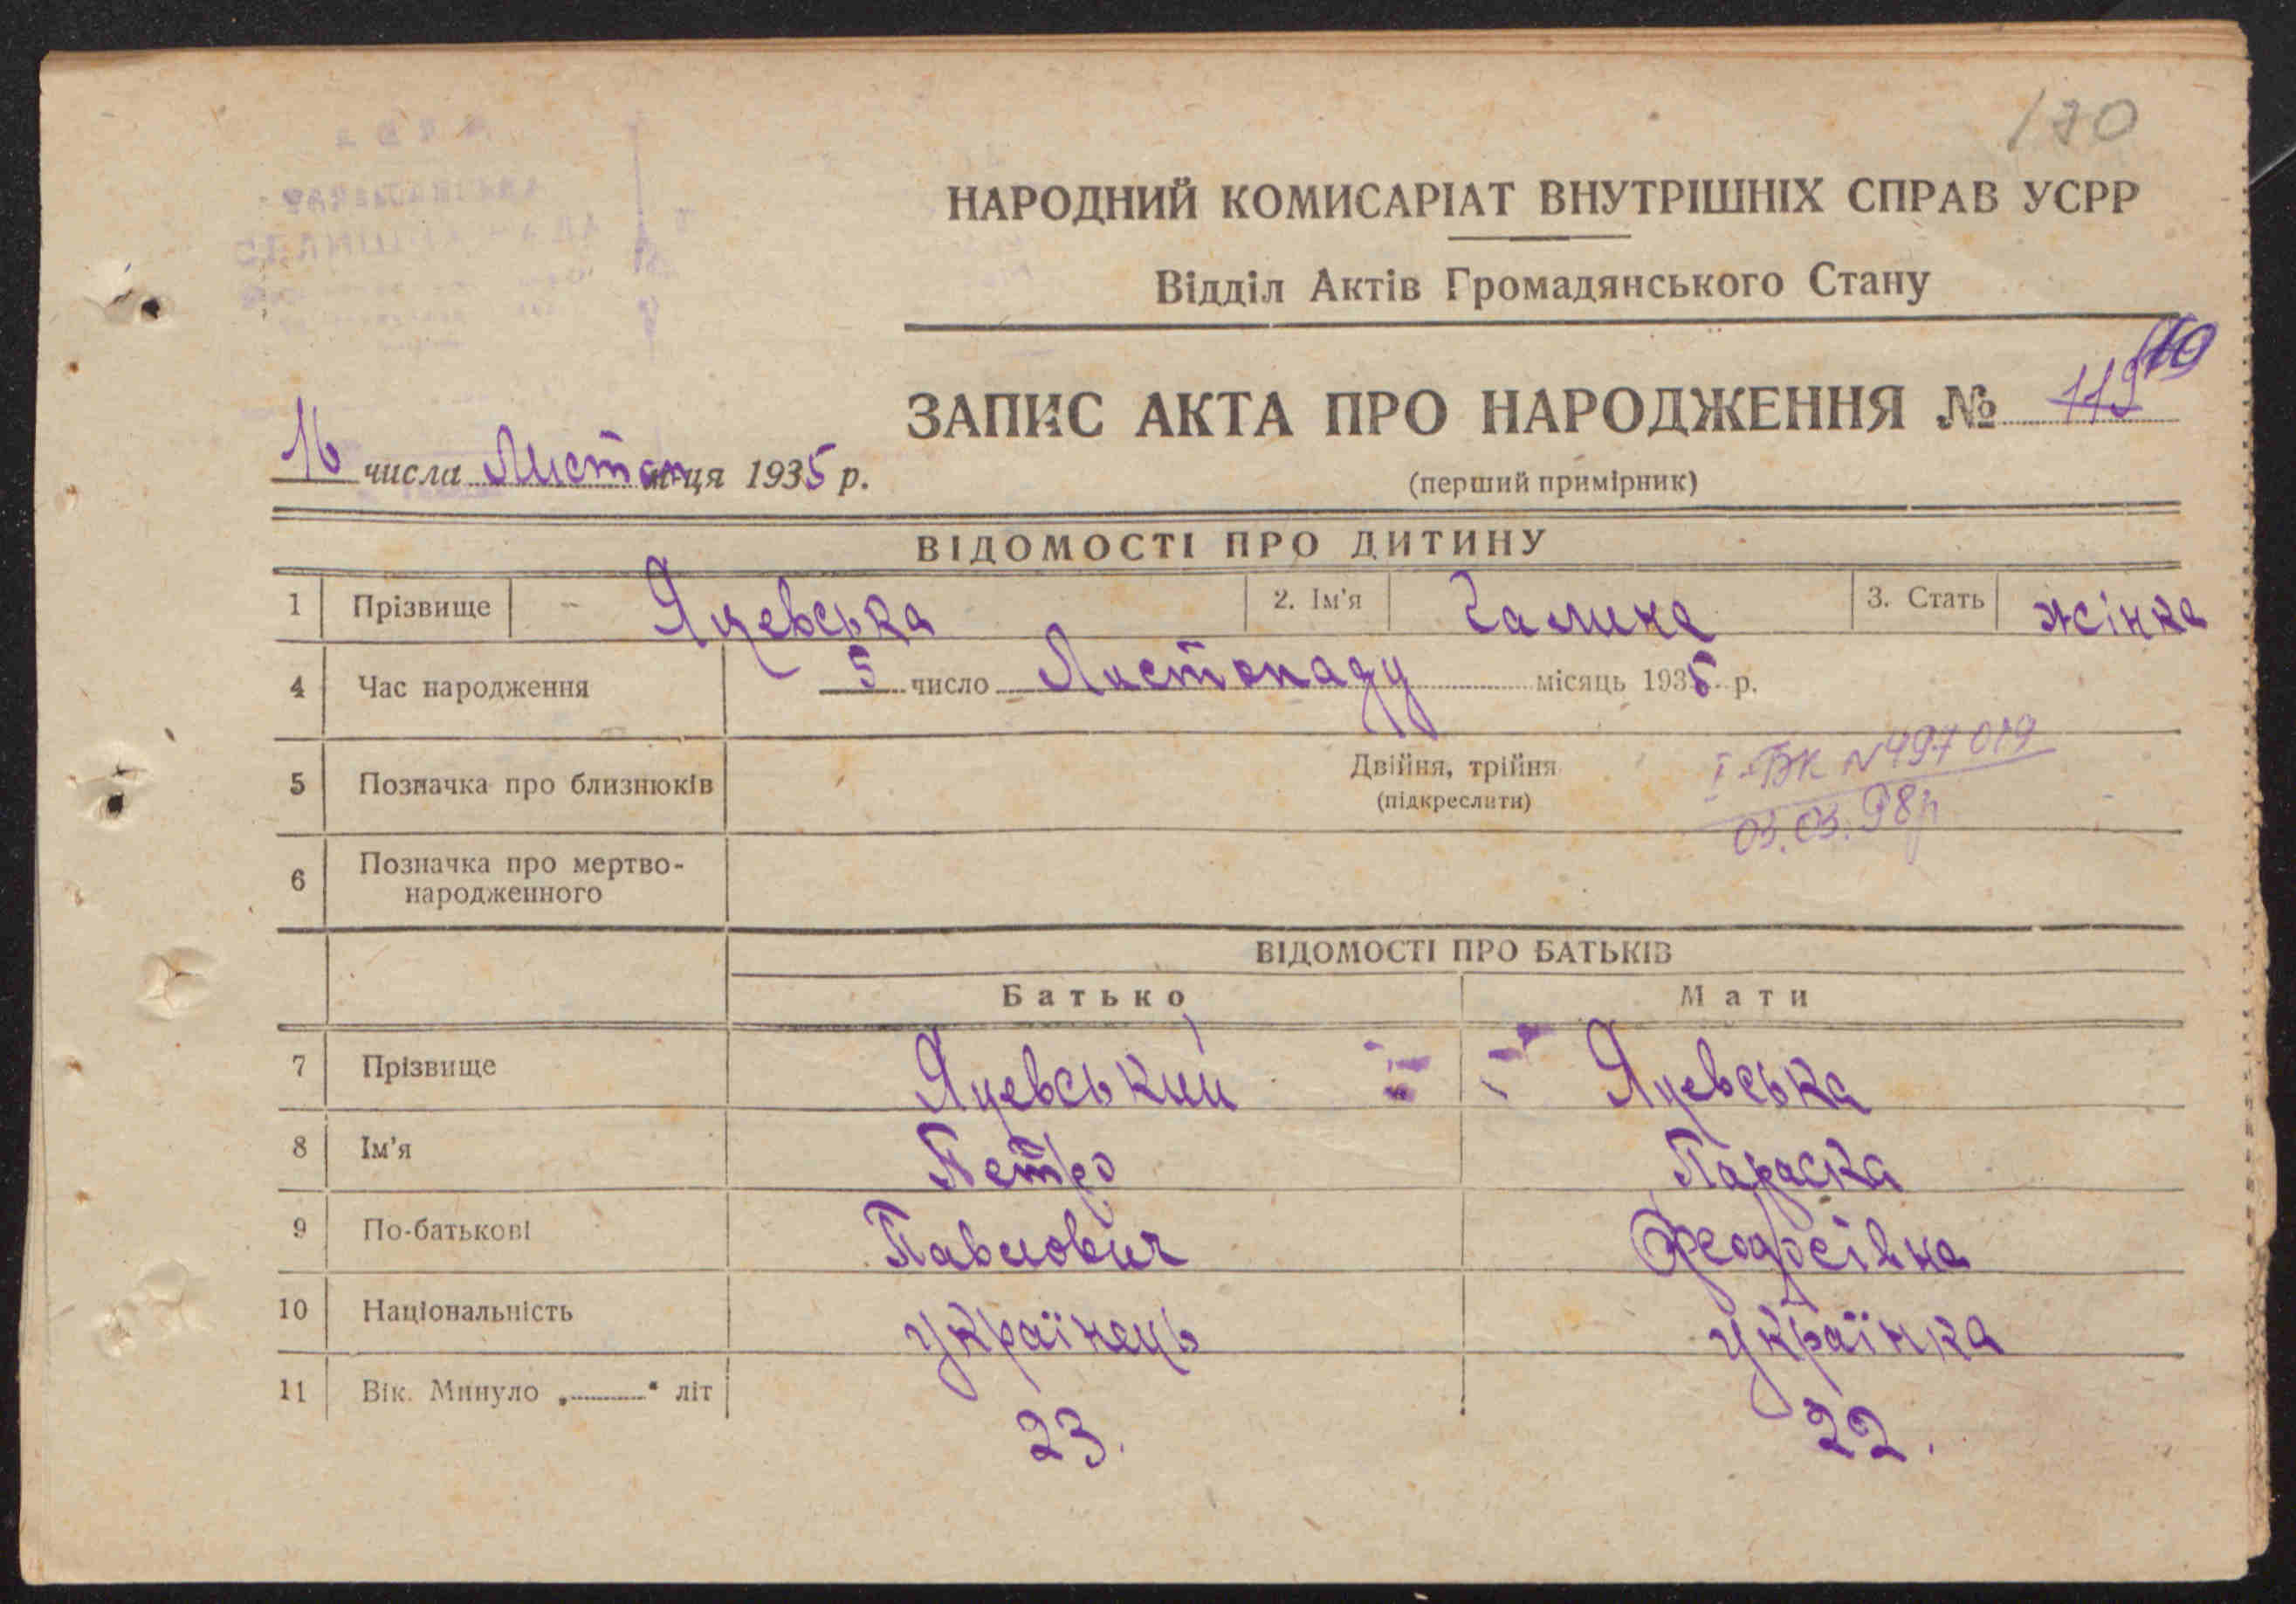 170
НАРОДНИЙ КОМИСАРІАТ ВНУТРІШНІХ СПРАВ УСРР
Відділ Актів Громадянського Стану
ЗАПИС АКТА ПРО НАРОДЖЕННЯ № 119
16 числа Листоп м-ця 1935 р.
(перший примірник)
ВІДОМОСТІ ПРО ДИТИНУ
1 Прізвище Яцевська 2. Ім'я Галина 3. Стать жінка
4 Час народження 5 число Листопаду місяць 1935 р.
5 Позначка про близнюків Двійня, трійня
(підкреслити)
І-БК №497019
03.03.98р
6 Позначка про мертво-
народженного
ВІДОМОСТІ ПРО БАТЬКІВ
Батько Мати
7 Прізвище Яцевський Яцевська
8 Ім'я Петро Параска
9 По-батькові Павлович Феодосівна
10 Національність українець українка
11 Вік. Минуло „ “ літ 23. 22.